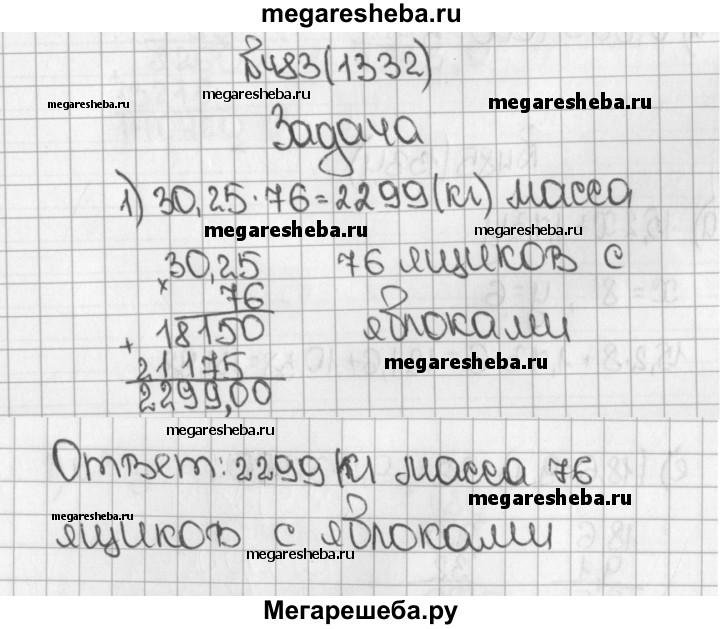 megaresheba.ru
№483(1332)
megaresheba.ru
megaresheba.ru
megaresheba.ru
Задача
1) 30,25·76=2299(кг) масса
megaresheba.ru
megaresheba.ru
30,25 76 ящиков с
× 76 яблоками
+ 18150
megaresheba.ru
21175
2299,00
megaresheba.ru
Ответ: 2299 (кг масса 76
megaresheba.ru
megaresheba.ru
ящиков с яблоками
megaresheba.ru
Мегарешеба.ру